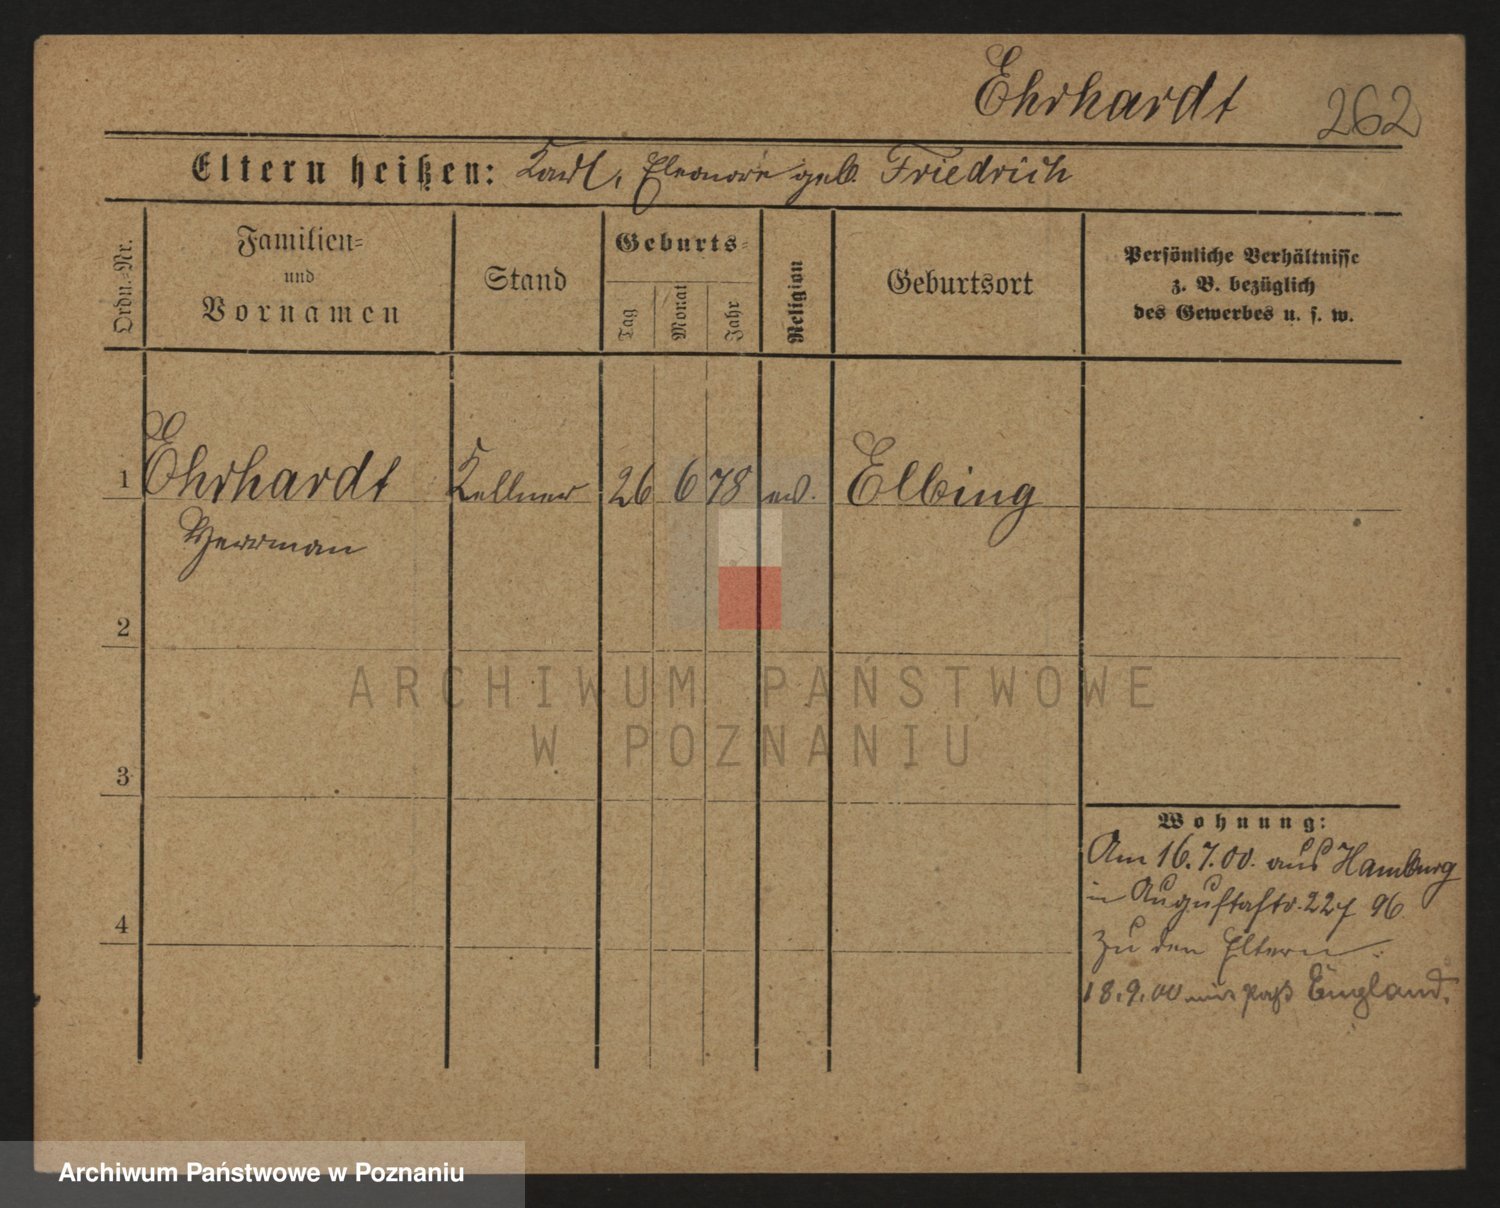 Ehrhardt 262
Eltern heißen: Karl, Eleonore geb. Friedrich
Ordn.-Nr.
Familien-
und
Vornamen
Stand
Geburts-
Tag
Monat
Jahr
Religion
Geburtsort
Persönliche Verhältnisse
z. B. bezüglich
des Gewerbes u. s. w.
1 Ehrhardt Kellner 26 6 78 ev. Elbing
Herrman
2
3
4
Wohnung:
Am 16.7.00. aus Hamburg
in Augustastr. 96
zu den Eltern.
18.9.00 Paß England.
ARCHIWUM PAŃSTWOWE
W POZNANIU
Archiwum Państwowe w Poznaniu